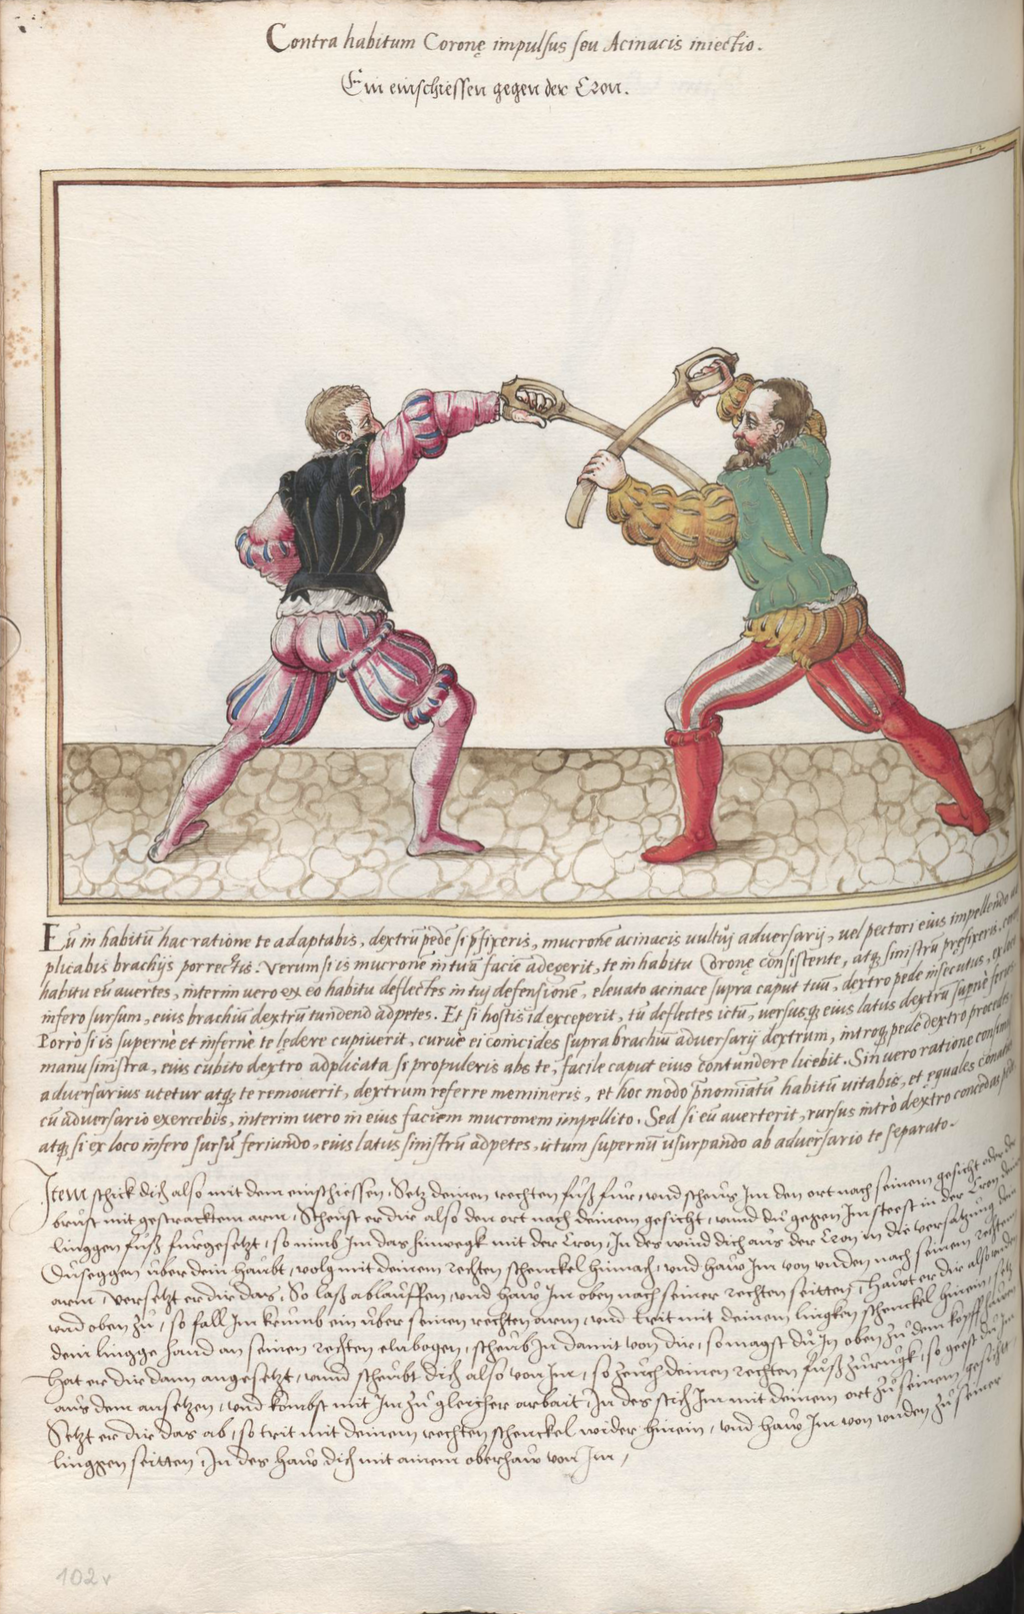 Contra habitum Coronę impulsus seu Acinacis iniectio.
Ein einschiessen gegen der Cron.
12
Eū in habitū hac ratione te adaptabis, dextrū pedē si p̄fixeris, mucronē acinacis uultuj aduersarij, uel pectori eius impellendo ad
plicabis brachijs porrectis. Verum si is mucronē in tuā faciē adegerit, te in habitu Coronę consistente, atq; sinistrū prefixeris,
habitu eū auertes, interim uero ex eo habitu deflectes in tuj defensionē, eleuato acinace supra caput tuū, dextro pede insecutus, ex loco
infero sursum, eius brachiū dextrū tundend adpetes. Et si hostis id exceperit, tū deflectes ictū, uersusq; eius latus dextrū supnè ferito.
Porro si is supernè et infernè te lędere cupiuerit, curuè ei coincides supra brachiū aduersarij dextrum, introq; pede dextro procedes,
manu sinistra, eius cubito dextro adplicata si propuleris abs te, facile caput eius contundere licebit. Sin uero ratione consimili
aduersarius utetur atq; te remouerit, dextrum referre memineris, et hoc modo p̄nominatū habitū uitabis, et equales conatus
cū aduersario exercebis, interim uero in eius faciem mucronem impellito. Sed si eū auerterit, rursus intrò dextro concedas pede
atq; si ex loco infero sursū feriundo, eius latus sinistrū adpetes, utum supernū usurpando ab aduersario te separato.
Item schick dich also mit dem einschiessen, Setz deinen rechten fuß fur, vnd scheus Im den ort nach seinem gesicht oder der
brust mit gestracktem arm, Scheust er dir also den ort nach deinem gesicht, vnnd du gegen Im steest in der Cron den
linggen fuß furgesetzt, so nimb Im das hinwegk mit der Cron, In des wind dich aus der Cron in die versatzung dein
Duseggen vber dein haubt, volg mit deinem rechten schenckel hinnach, vnd haw Im von vnden nach seinem rechten
arm, versetzt er dir das, So laß ablauffen, vnd haw Im oben nach seiner rechten seitten, hawt er dir also vnden
vnd oben zu, so fall Im krumb ein vber seinen rechten arm, vnd trit mit deinem linggken schenckel hinein, setz
dein lingge hand an seinen rechten elnbogen, scheub In damit von dir, so magst du In oben zu dem kopff hawen
Hat er dir dann angesetzt, vnnd scheubt dich also von Im, so zeuch deinen rechten fuß zurugk, so geest du Im
aus dem ansetzen, vnd kombst mit Im zu gleicher arbait, In des stich Im mit deinem ort zu seinem gesicht
Setzt er dir das ab, so trit mit deinem rechten schenckel wider hinein, vnd haw Im von vnden zu seiner
linggen seitten, In des haw dich mit ainem oberhaw von Im,
102v